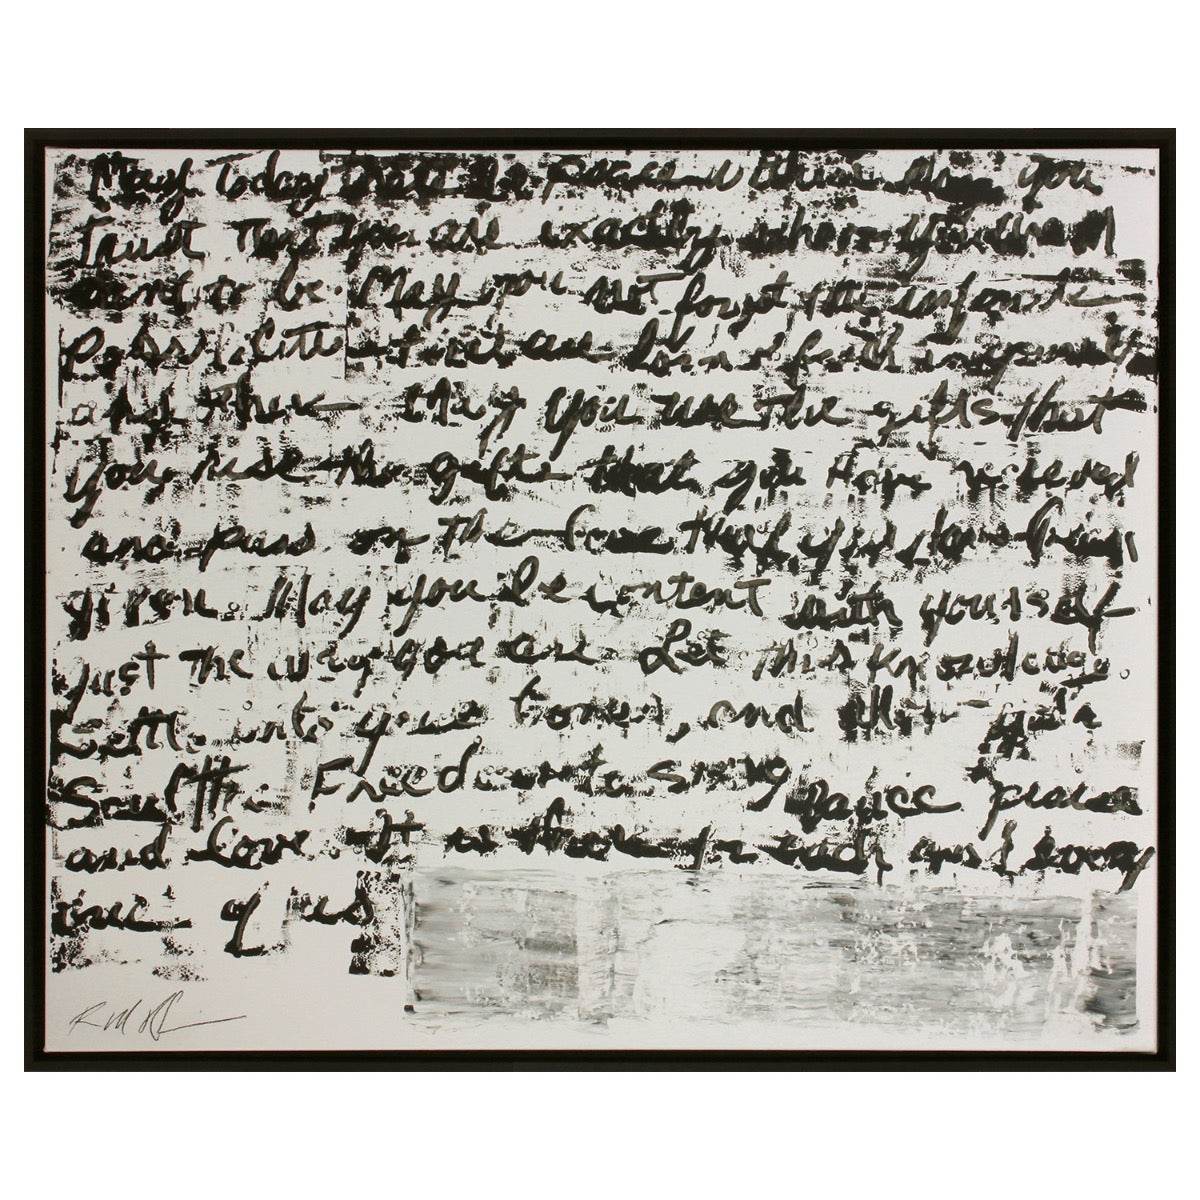 May Today there be Peace within. May you
Trust That you are exactly where you are
ment to be. May you not forget the infinite
Possibilities that are born of faith in yourself
and others. May you use the gifts that
you use the gifts that you Have recieved
and pass on the love that you have been
given. May you be content with yourself
just The way you are. Let this Knowledge
settle into your bones, and allow your
Soul the Freedom to sing Dance praise
and Love. It is there for each and every
one of us